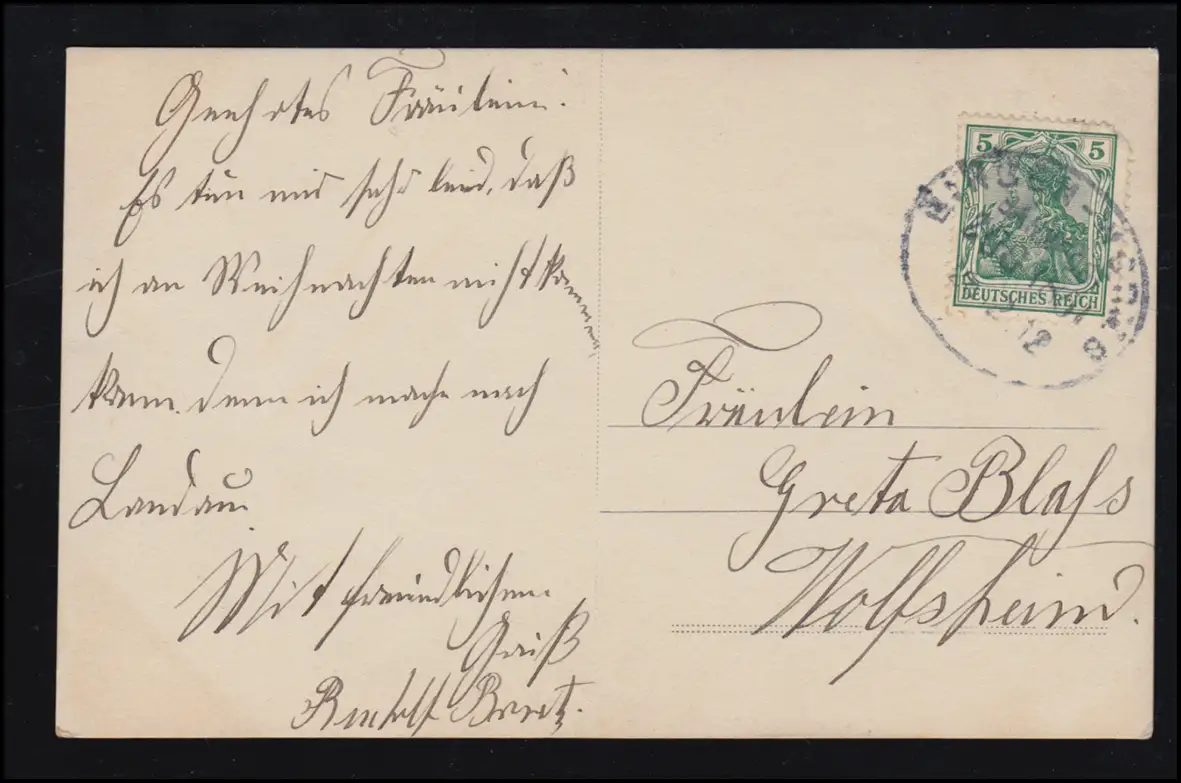 Geehrtes Fräulein!
Es tun mir sehr leid, daß
ich an Weihnachten nicht kommen
kann. Denn ich mache nach
Landau.
Mit freundlichen
Gruß
Rudolf
5 5
DEUTSCHES REICH
Fräulein
Greta Blass
Wolfsheim.